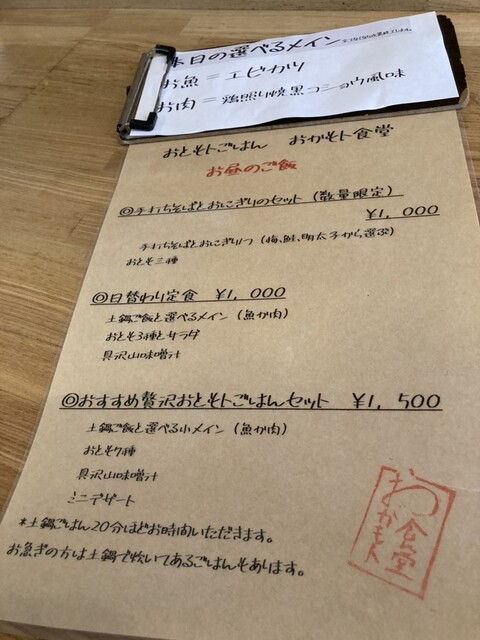 本日の選べるメイン
お魚=エビカツ
お肉=鶏照り焼黒コショウ風味
おとそトごはん おかモト食堂
お昼のご飯
◎手打ちそばとおにぎりのセット(数量限定)
¥1,000
手打ちそばとおにぎり1つ(梅、鮭、明太子から選ぶ)
おとそ三種
◎日替わり定食 ¥1,000
土鍋ご飯と選べるメイン(魚か肉)
おとそ3種とサラダ
具沢山味噌汁
◎おすすめ贅沢おとそトごはんセット ¥1,500
土鍋ご飯と選べる小メイン(魚か肉)
おとそ7種
具沢山味噌汁
ミニデザート
*土鍋ごはん20分ほどお時間いただきます。
お急ぎの方は土鍋で炊いてあるごはんもあります。
おかモト食堂